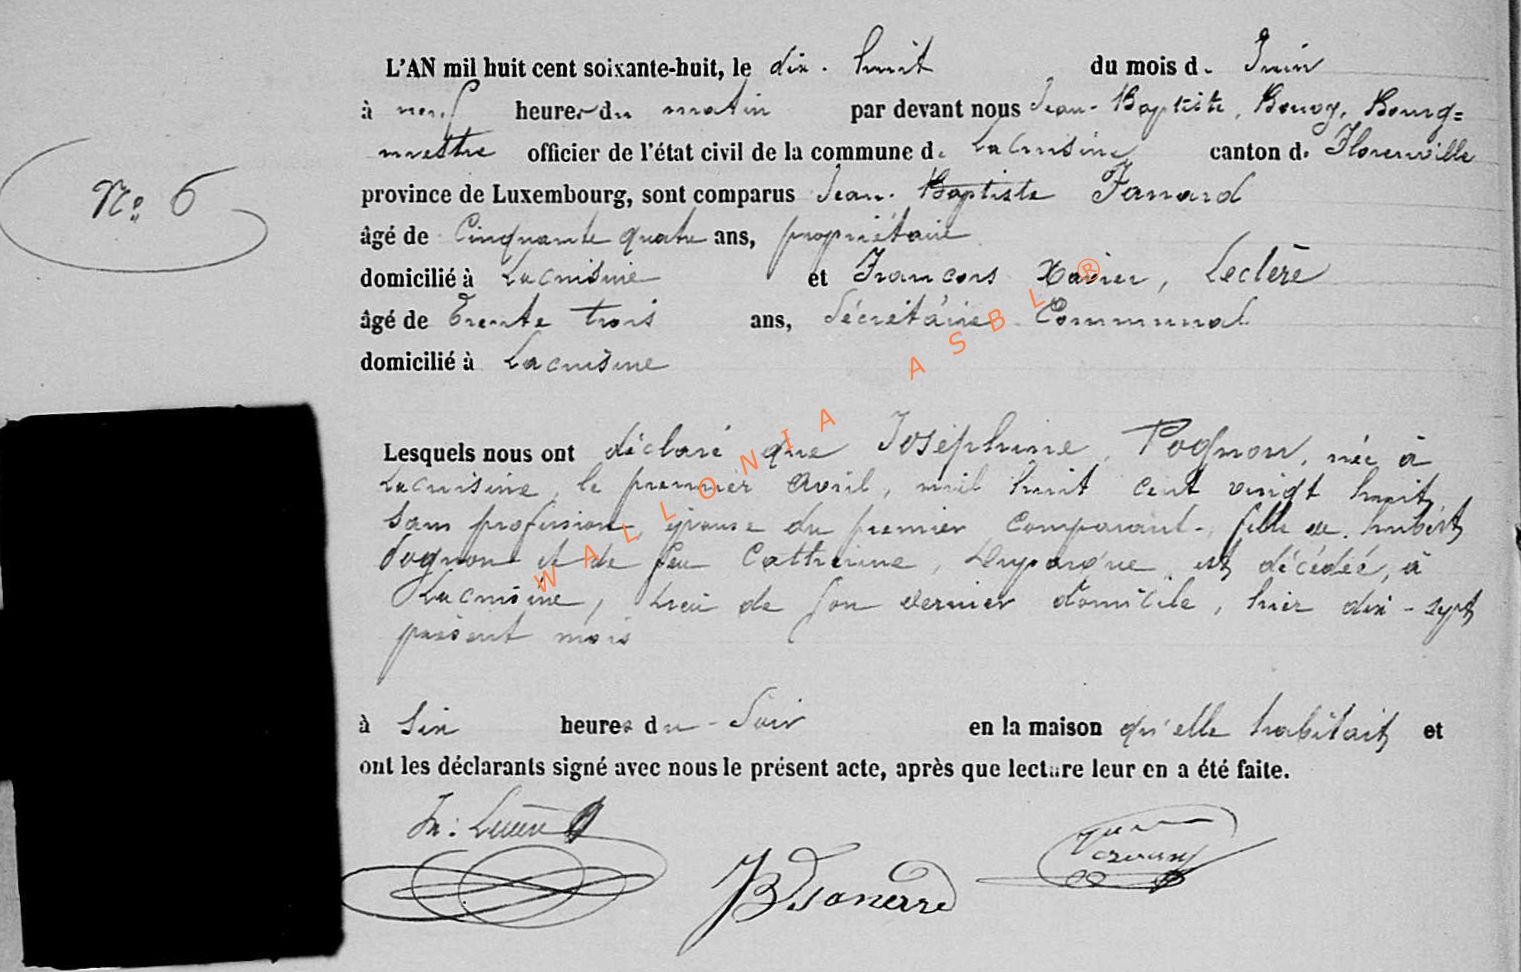 L'AN mil huit cent soixante-huit, le dix-huit du mois de Juin
à neuf heures du matin par devant nous Jean-Baptiste, Bourg=
mestre officier de l'état civil de la commune de Lacuisine, canton de Florenville
N° 6
province de Luxembourg, sont comparus Jean Baptiste
âgé de Cinquante quatre ans, propriétaire
domicilié à Lacuisine et François Xavier, Leclère
âgé de Trente trois ans, Sécretaire Communal
domicilié à Lacuisine
Lesquels nous ont déclaré que Joséphine, Pognon, née à
Lacuisine, le premier Avril, mil huit cent vingt huit,
sans profession, épouse du premier comparant, fille de hubert
Pognon et de feu Catherine, est décédée, à
Lacuisine, lieu de son dernier domicile, hier dix-sept
présent mois
à Six heures du Soir en la maison qu'elle habitait, et
ont les déclarants signé avec nous le présent acte, après que lecture leur en a été faite.
WALLONIA ASBL ®